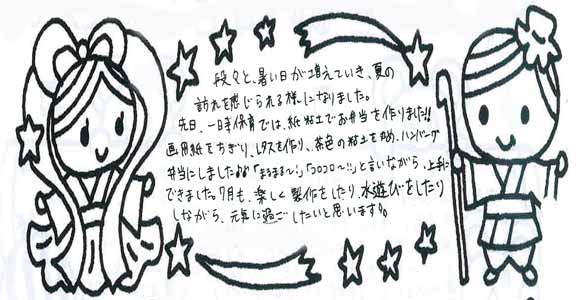 段々と、暑い日が増えていき、夏の
訪れを感じられる様になりました。
先日、一時保育では、紙粘土でお弁当を作りました!!
画用紙をちぎり、レタスを作り、茶色の粘土を丸め、ハンバーグ
弁当にしました♪♪「まるまる〜!」「コロコロ〜!!」と言いながら、上手に
できました。7月も、楽しく製作をしたり、水遊びをしたり
しながら、元気に過ごしたいと思います。